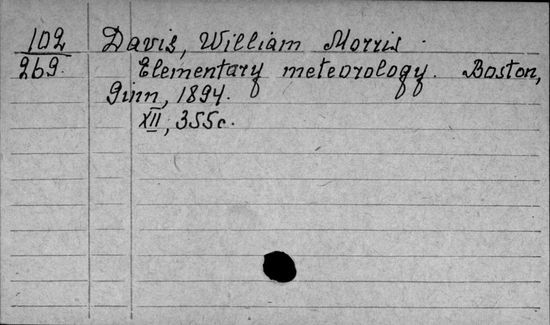 102 Davis, William Morris.
269. Elementary meteorology. Boston,
Ginn, 1894.
XII, 355c.